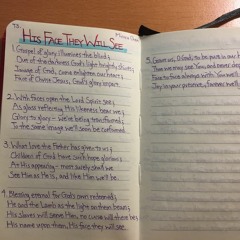 73.
HIS FACE THEY WILL SEE
1. Gospel of glory illumines the blind;
Out of the darkness God's light brightly shines;
Image of God, come enlighten our heart;
Face of Christ Jesus, God's glory impart.
2. With faces open the Lord Spirit see;
As glass reflecting His likeness bear we;
Glory to glory - we're being transformed;
To the same image we'll soon be conformed.
3. What love the Father has given to us;
Children of God have such hope glorious;
At His appearing - most surely shall we
See Him as He is, and like Him we'll be.
4. Blessing eternal for God's own redeemed;
He and the Lamb as the light on them beam;
His slaves will serve Him, no curse will there be;
His name upon them, His face they will see.
5. Grant us, O God, to be part in our
That we may see You, and never de
Face to face always with You we'll
Joy in your presence, forever we'll